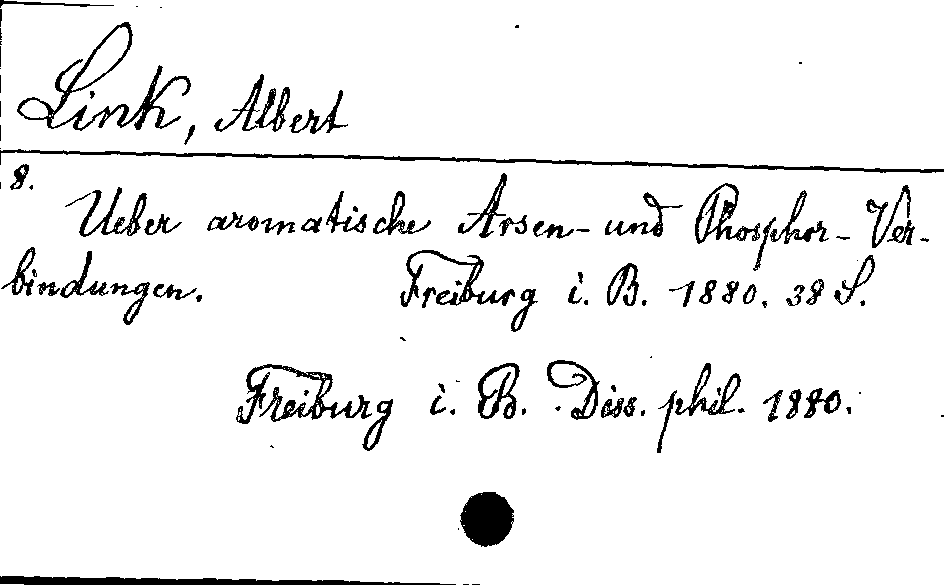 Link, Albert
8.
Ueber aromatische Arsen- und Phosphor-Ver-
bindungen. Freiburg i. B. 1880. 38 S.
Freiburg i. B. Diss. phil. 1880.